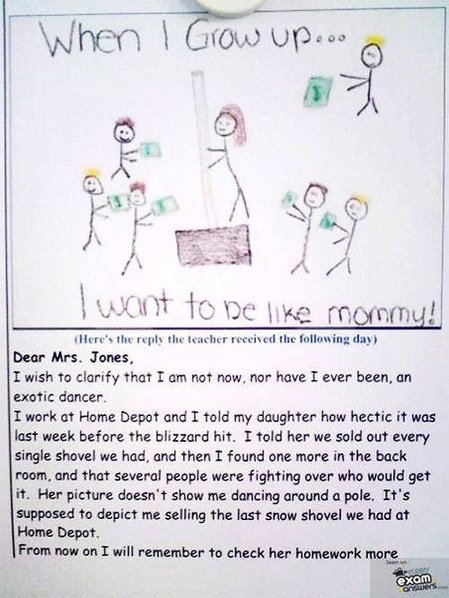 When I Grow up...
I want to be like mommy!
(Here's the reply the teacher received the following day)
Dear Mrs. Jones,
I wish to clarify that I am not now, nor have I ever been, an
exotic dancer.
I work at Home Depot and I told my daughter how hectic it was
last week before the blizzard hit.  I told her we sold out every
single shovel we had, and then I found one more in the back
room, and that several people were fighting over who would get
it.  Her picture doesn't show me dancing around a pole.  It's
supposed to depict me selling the last snow shovel we had at
Home Depot.
From now on I will remember to check her homework more
Seen on:
FUNNY
exam
answers.com